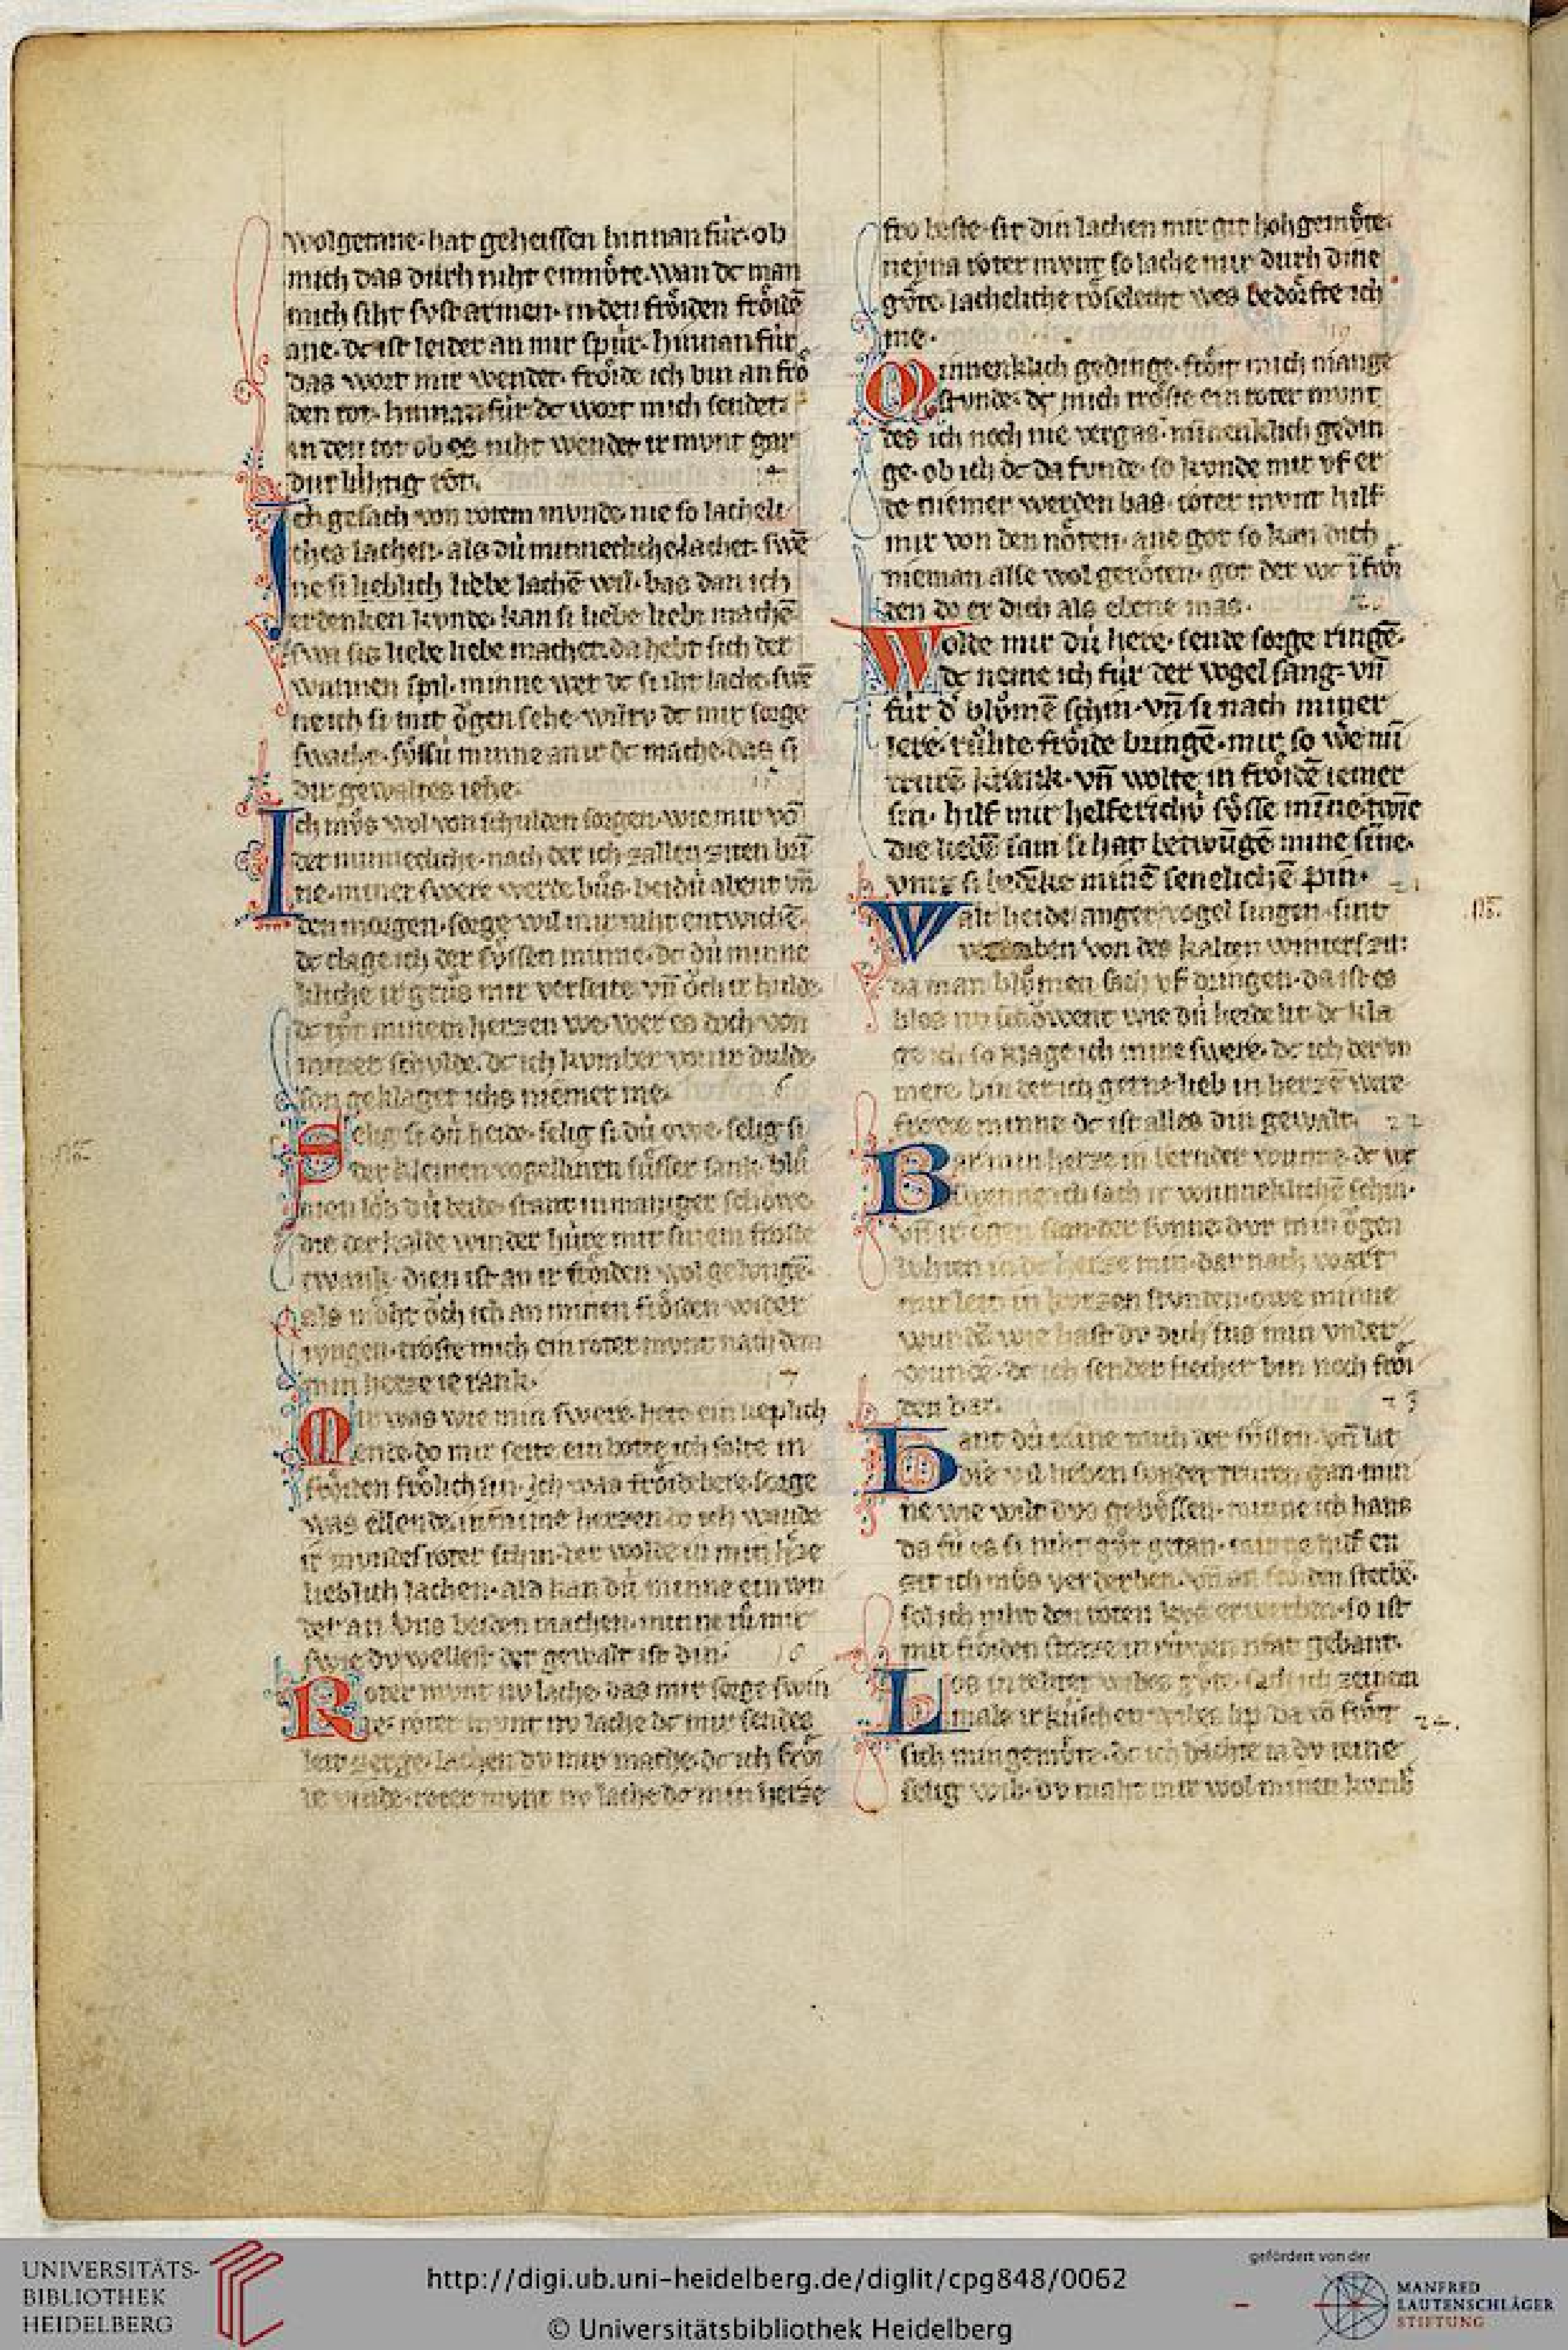 wolgetane. hat geheissen hinnan fúr. ob
mich das dúrh niht enmůte. wan dc man
mich siht svst armen. in den frǒiden frǒidē
ane. dc ist leider an mir spúr. hinnan fúr
das wort mir wendet. frǒide ich bin an frǒ
den tot. hinnan fúr dc wort mich sendet.
in den tot ob es niht wendet ir mvnt gar
dur lúhtig rot.
Ich gesach von rotem mvnde nie so lacheli
ches lachen. als dú minnekliche lachet. swē
ne si lieblich liebe lachē wil. bas dan ich
erdenken kvnde. kan si liebe liebe machē.
swn sis liebe liebe machet. da hebt sich der
wunnen spil. minne wer dc si iht lache. swē
ne ich si mit ǒgen sehe. dc mir sorge
swache. sůssú minne an ir dc mache. das si
dir gewaltes iehe.
Ich můs wol von schulden sorgen. wie mir vō
der minnekliche. nach der ich zallen ziten bri
ne. miner swere werde bůs. beidú abent vn̄
den morgen. sorge wil mir niht entwichē.
dc clage ich der sůssen minne. dc dú minne
kliche ir grůs mir verseite. vn̄ ǒch ir hulde.
dc tůt minem herzen we. wer es doch von
miner schvlde. dc ich kvmber von ir dulde.
son geklaget ichs niemer me.
Selig si dú heide. selig si dú owe. selig si
der kleinen vogellinen sůsser sank. blů
men lǒb dú beide. stant in maniger schowe.
die der kalde winder húre mit sinem froste
twank. dien ist an ir frǒiden wol gelvngē.
als mǒht ǒch ich an minen frǒiden wider
ivngen. troste mich ein roter mvnt nach dem
min herze ie rank.
Mir was wie min swere. hete ein
ende. do mir seite ein botte ich solte in
frǒiden frǒlich sin. Ich was frǒide bere. sorge
was ellende. in mine herzen do ich wande
ir mvndes roter schin. der wolde in min h̾ze
lieblich lachen. als kan dú minne ein wn
der an vns beiden machen. minne tů mir
swie dv wellest der gewalt ist din.
Roter mvnt nv lache. das mir sorge swin
de. roter mvnt nv lache dc mir sendes
leit zerge. lachen dv mir mache. dc ich frǒi
de vinde. roter mvnt nv lache dc min herze
fro beste. sit din lachen mir git hoh gemůte.
neyna roter mvnt so lache mir durh dine
gůte. lacheliche rǒseleht wes bedǒrfte ich
me.
Minnenklich gedinge. frǒit mich mange
stvnde. dc mich trǒste ein roter mvnt
des ich noch nie vergas. minenklich gedin
ge. ob ich dc da fvnde. so kvnde mir vf er
de niemer werden bas. roter mvnt hilf
mir von den nǒten. ane got so kan dich
nieman alse wol gerǒten. got der wc ī frǒi
den do er dich als ebene mas.
Wolde mir dú here. sende sorge ringē.
dc neme ich fúr der vogel sang. vn̄
fúr d̾ blůmē schin. vn̄ si nach miner
lere. růhte frǒide bringē. mir so
trurē krank. vn̄ wolte in frǒidē iemer
sin. hilf mir helferichú sůsse
die liebē sam si hat betwūgē mine sine.
vntz si bedēke minē senelichē pin.
Walt heide anger vogel singen. sint
verdorben von des kalten winters zit.
da man blůmen sach vf dringen. da ist es
blos nv schǒwent wie dú heide lit. dc kla
ge ich so klage ich mine swere. dc ich der vn
mere. bin der ich gerne lieb in herzē were.
frowe minne dc ist alles din gewalt.
Bar min herze in bernder wunne. dc wc
swenne ich sach ir wunneklichē schin.
vn̄ ir ǒgen sam der svnne. dvr min ǒgen
luhten in dc herze min. dar nach wart
mir leit in kvrzen stvnden. owe minne
wundē. wie hast dv dich svs min vnder
wundē. dc ich sender siecher bin noch frǒi
den bar.
Hant dú mine mich der sůssen. vn̄ lat
die vil lieben svnder truren gan. min
ne wie wilt dvs gebůssen. minne ich hans
da fú es si niht gůt getan. minne hilf en
zit ich můs verderben. vn̄ an frǒiden sterbē.
sol ich mir den roten kvs erwerben. so ist
mit frǒiden strasse in rúwen pfat gebant.
Los in rehter wibes gůte. sach ich zeinem
male ir kúschen wibes lip. da vō frǒit
sich min gemůte. dc ich dahte ia dv reine
selig wib. dv maht mir wol minen kvmb̾
UNIVERSITÄTS-
BIBLIOTHEK
HEIDELBERG
http://digi.ub.uni-heidelberg.de/diglit/cpg848/0062
© Universitätsbibliothek Heidelberg
gefördert von der
MANFRED
LAUTENSCHLÄGER
STIFTUNG